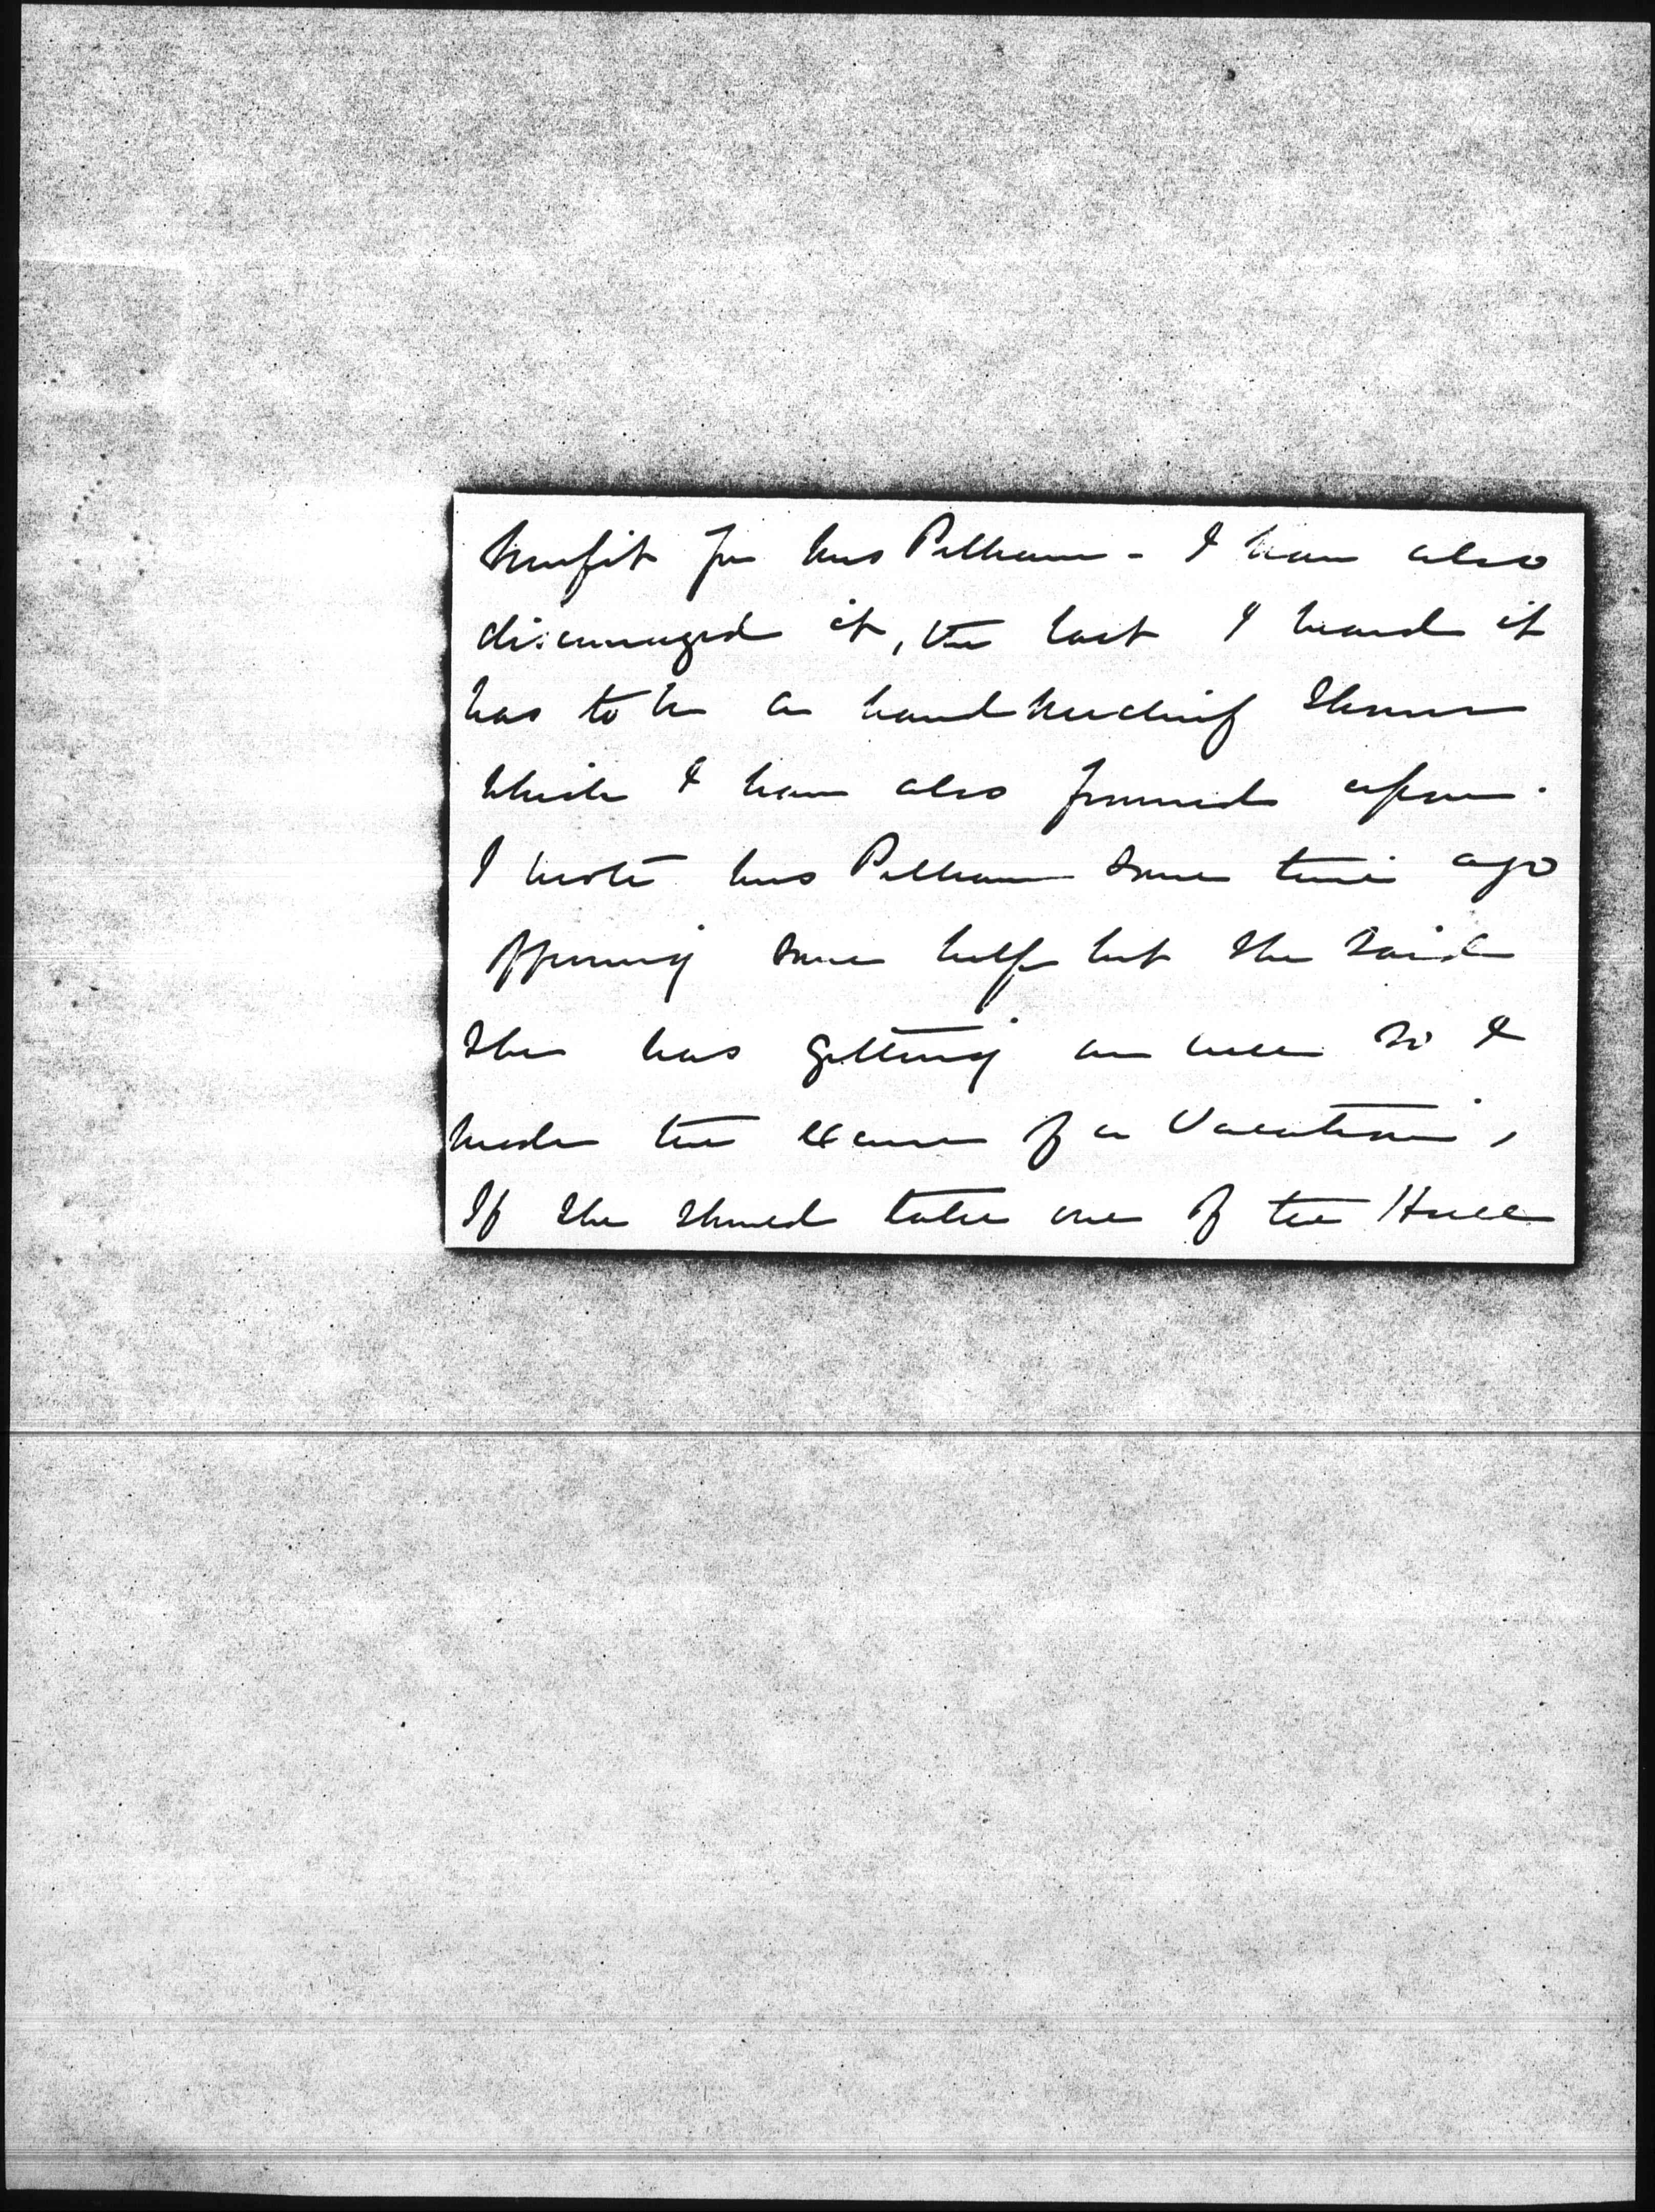 benefit for Mrs Pelham - I have also
discouraged it, the last I heard it
was to be a handkerchief shower
which I have also frowned upon.
I wrote Mrs Pelham some time ago
offering some help but she said
she was getting on well so I
made the excuse of a vacation,
If she should take one of the Hull